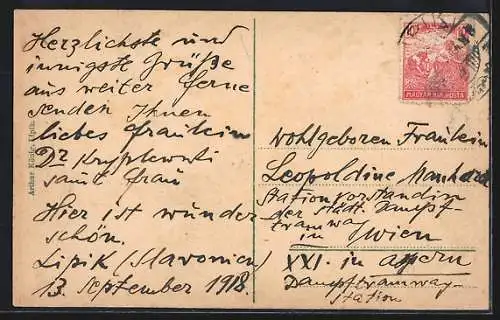 Herzlichste und
innigste Grüße
aus weiter Ferne
senden Ihnen
liebes Fräulein
Dr
samt Frau
Hier ist wunder
schön.
Lipik (Slavonien)
13. September 1918.
Arthur König, Lipik.
MAGYAR KIR. POSTA
Wohlgeboren Fräulein
Leopoldine
Stationsvorstandin
der städt. Dampf-
tramway
in Wien
XXI. in Aspern
Dampftramway-
Station